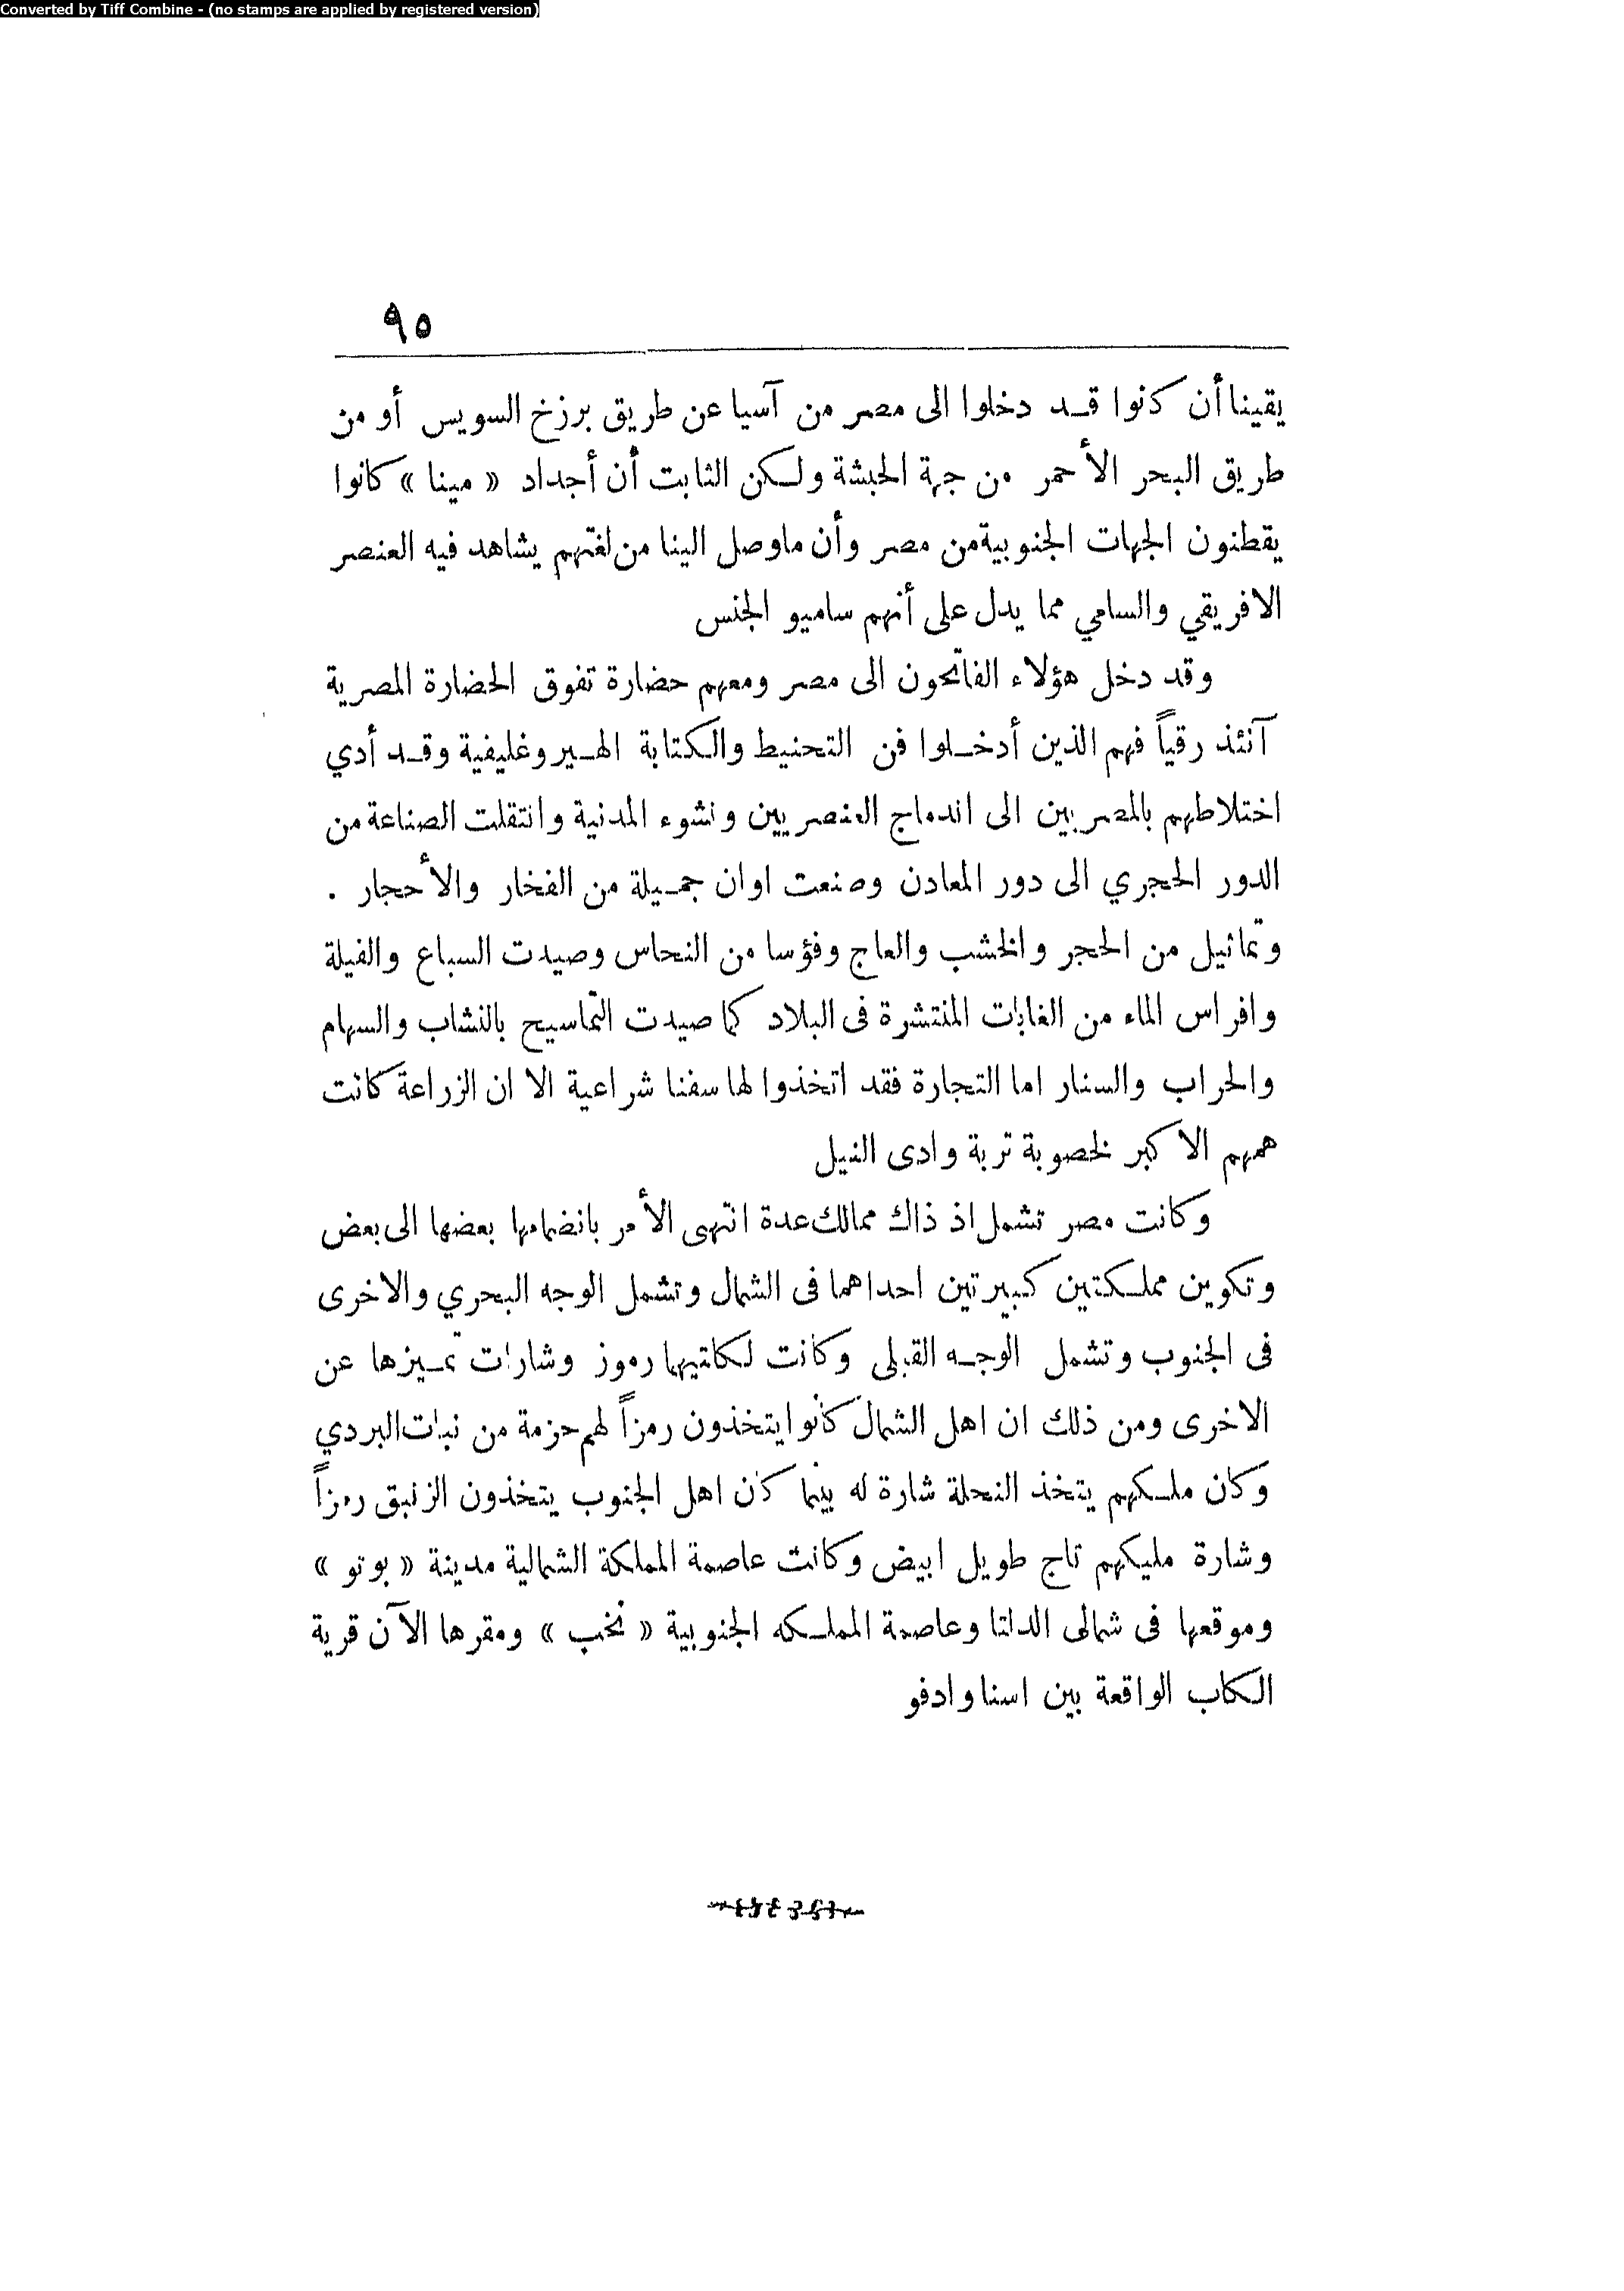 Converted by Tiff Combine - (no stamps are applied by registered version)
٩٥
يقينا أن كانوا قد دخلوا الى مصر من آسيا عن طريق برزخ السويس أو من
طريق البحر الأحمر من جهة الحبشة ولكن الثابت أن أجداد « مينا » كانوا
يقطنون الجهات الجنوبية من مصر وأن ماوصل الينا من لغتهم يشاهد فيه العنصر
الافريقي والسامي مما يدل على أنهم ساميو الجنس
وقد دخل هؤلاء الفاتحون الى مصر ومعهم حضارة تفوق الحضارة المصرية
آنئذ رقياً فهم الذين أدخلوا فن التحنيط والكتابة الهيروغليفية وقد أدي
اختلاطهم بالمصريين الى اندماج العنصريين ونشوء المدنية وانتقلت الصناعة من
الدور الحجري الى دور المعادن وصنعت اوان جميلة من الفخار والأحجار .
وتماثيل من الحجر والخشب والعاج وفؤسا من النحاس وصيدت السباع والفيلة
وافراس الماء من الغابات المنتشرة فى البلاد كما صيدت التماسيح بالنشاب والسهام
والحراب والسنار اما التجارة فقد اتخذوا لها سفنا شراعية الا ان الزراعة كانت
همهم الاكبر لخصوبة تربة وادى النيل
وكانت مصر تشمل اذ ذاك ممالك عدة انتهى الأمر بانضمامها بعضها الى بعض
وتكوين مملكتين كبيرتين احداهما فى الشمال وتشمل الوجه البحري والاخرى
فى الجنوب وتشمل الوجه القبلى وكانت لكلتيهما رموز وشارات تميزها عن
الاخرى ومن ذلك ان اهل الشمال كانوا يتخذون رمزاً لهم حزمة من نبات البردي
وكان ملكهم يتخذ النحلة شارة له بينما كان اهل الجنوب يتخذون الزنبق رمزاً
وشارة مليكهم تاج طويل ابيض وكانت عاصمة المملكة الشمالية مدينة « بوتو »
وموقعها فى شمالى الدلتا وعاصمة المملكه الجنوبية « نخب » ومقرها الآن قرية
الكاب الواقعة بين اسنا وادفو